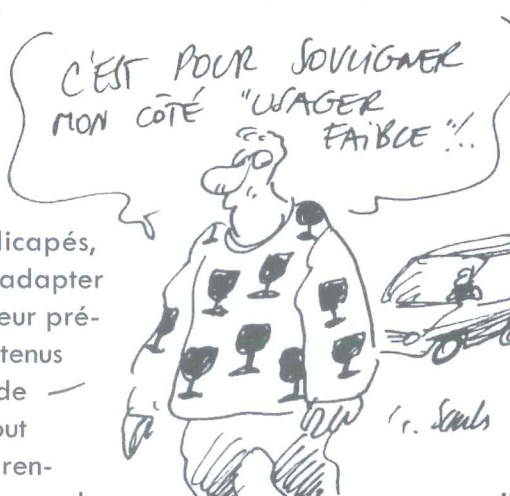 C'EST POUR SOULIGNER
MON CÔTÉ "USAGER
FAIBLE"!..
dicapés,
adapter
eur pré-
tenus
de
out
ren-